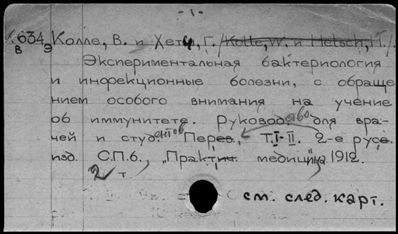 - 1 -
634 Колле, В. и Хетч, Г. /Kolle, W. и Hetsch, H./.
в э
Экспериментальная бактериология
и инфекционные болезни, с обраще-
нием особого внимания на учение
об иммунитете. Руководство для вра-
чей и студентов. Перев., Т.I-II. 2-е русс.
изд. С.П.б., „Практич. медицина", 1912.
2 т.
см. след. карт.